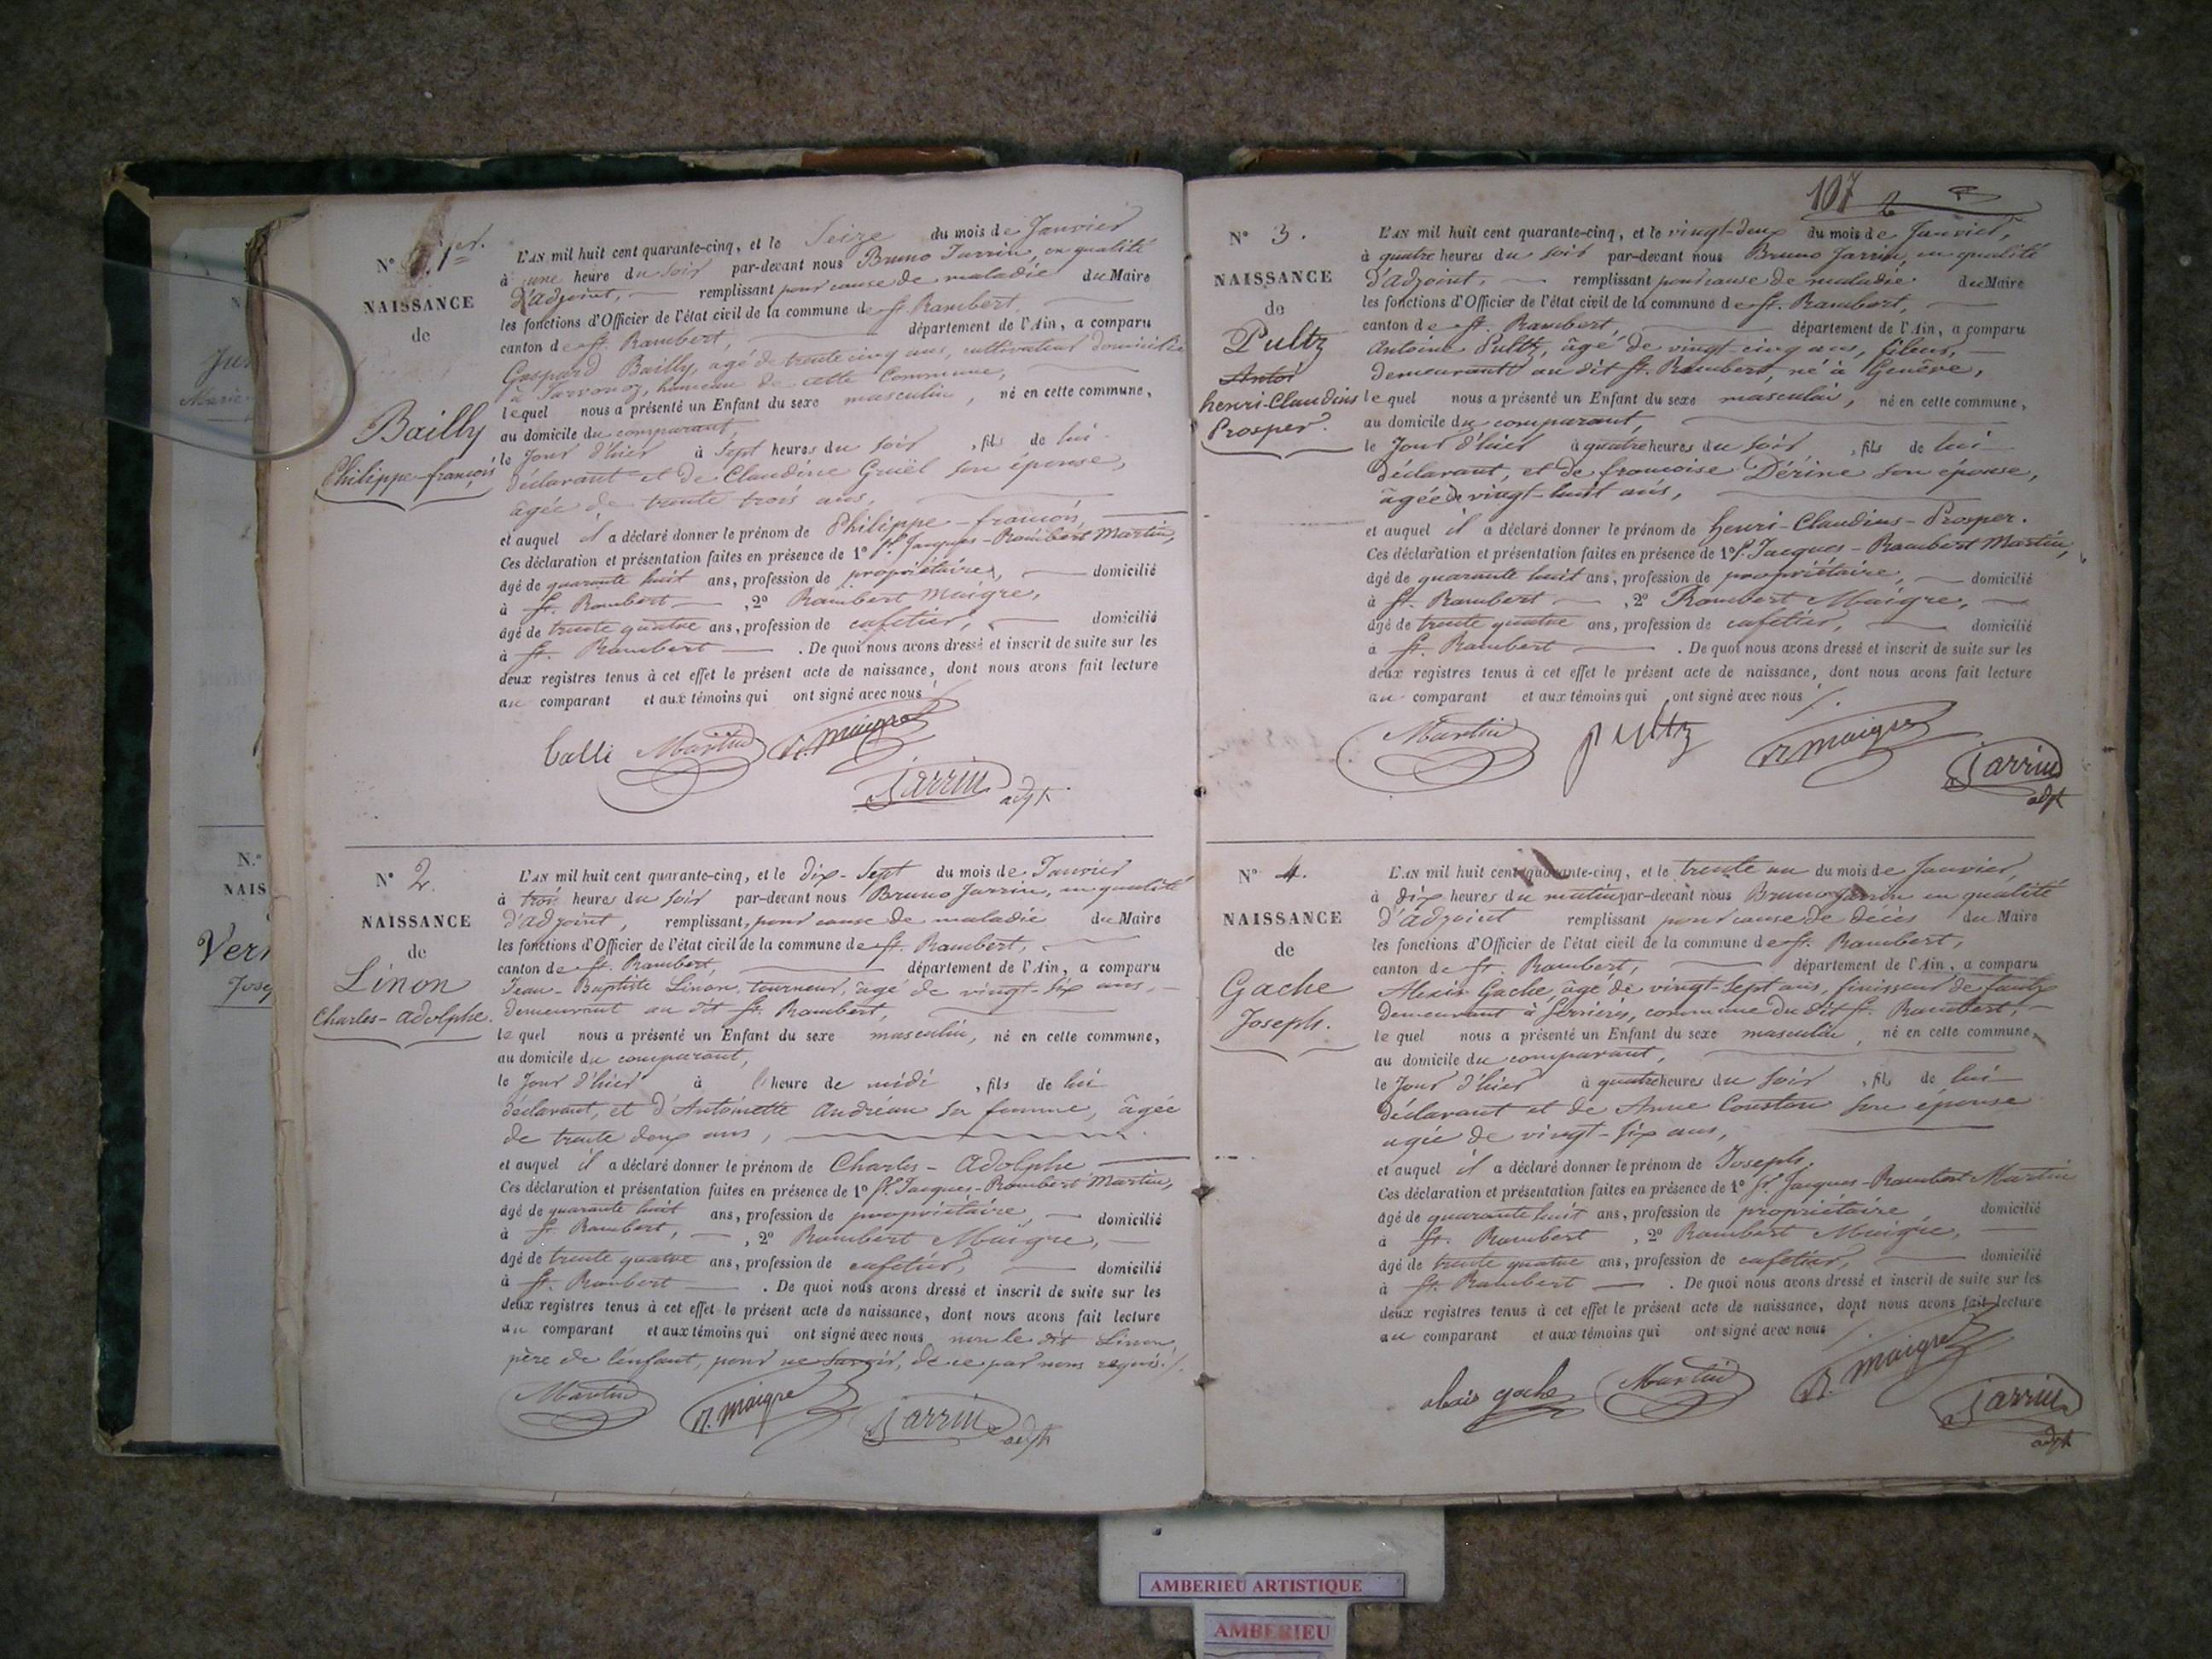 N° 1er.
NAISSANCE
de
Bailly
Philippe-françois
L'AN mil huit cent quarante-cinq, et le Seize du mois de Janvier
à une heure du soir par-devant nous Bruno Jarrin, en qualité
d'adjoint, remplissant pour cause de maladie du Maire
les fonctions d'Officier de l'état civil de la commune de St. Rambert,
canton de St. Rambert, département de l'Ain, a comparu
Gaspard Bailly, agé de trente cinq ans, cultivateur domicilié
à Javornoz, hameau de cette Commune,
lequel nous a présenté un Enfant du sexe masculin, né en cette commune,
au domicile du comparant,
le Jour d'hier à Sept heures du soir, fils de lui
déclarant et de Claudine Gruël son épouse,
agée de trente trois ans,
et auquel il a déclaré donner le prénom de Philippe-françois
Ces déclaration et présentation faites en présence de 1° Sr. Jacques-Rambert Martin,
âgé de quarante huit ans, profession de propriétaire, domicilié
à St. Rambert, 2° Rambert Maigre,
âgé de trente quatre ans, profession de cafetier, domicilié
à St. Rambert. De quoi nous avons dressé et inscrit de suite sur les
deux registres tenus à cet effet le présent acte de naissance, dont nous avons fait lecture
au comparant et aux témoins qui ont signé avec nous
balli Martin R. Maigre
Jarrin adjt
N° 2.
NAISSANCE
de
Linon
Charles-adolphe.
L'AN mil huit cent quarante-cinq, et le dix-sept du mois de Janvier
à trois heures du soir par-devant nous Bruno Jarrin, en qualité
d'adjoint, remplissant, pour cause de maladie du Maire
les fonctions d'Officier de l'état civil de la commune de St. Rambert,
canton de St. Rambert, département de l'Ain, a comparu
Jean-Baptiste Linon, tourneur, âgé de vingt-six ans,
demeurant au dit St. Rambert,
lequel nous a présenté un Enfant du sexe masculin, né en cette commune,
au domicile du comparant,
le Jour d'hier à l'heure de midi, fils de lui
déclarant, et d'Antoinette Andréan sa femme, âgée
de trente deux ans,
et auquel il a déclaré donner le prénom de Charles-Adolphe
Ces déclaration et présentation faites en présence de 1° Sr. Jacques-Rambert Martin,
âgé de quarante huit ans, profession de propriétaire, domicilié
à St. Rambert, 2° Rambert Maigre,
âgé de trente quatre ans, profession de cafetier, domicilié
à St. Rambert. De quoi nous avons dressé et inscrit de suite sur les
deux registres tenus à cet effet le présent acte de naissance, dont nous avons fait lecture
au comparant et aux témoins qui ont signé avec nous non le dit Linon,
père de l'enfant, pour ne savoir, de ce par nous requis./.
Martin R. Maigre Jarrin adjt
107
N° 3.
NAISSANCE
de
Pultz
Antoi
henri-Claudius
Prosper.
L'AN mil huit cent quarante-cinq, et le vingt-deux du mois de Janvier,
à quatre heures du soir par-devant nous Bruno Jarrin, en qualité
d'adjoint, remplissant pour cause de maladie du Maire
les fonctions d'Officier de l'état civil de la commune de St. Rambert,
canton de St. Rambert, département de l'Ain, a comparu
Antoine Pultz, âgé de vingt-cinq ans, fileur,
demeurant au dit St. Rambert, né à Genève,
lequel nous a présenté un Enfant du sexe masculin, né en cette commune,
au domicile du comparant,
le Jour d'hier à quatre heures du soir, fils de lui
déclarant, et de françoise Dérine son épouse,
âgée de vingt-huit ans,
et auquel il a déclaré donner le prénom de henri-Claudius-Prosper.
Ces déclaration et présentation faites en présence de 1° Sr. Jacques-Rambert Martin,
âgé de quarante huit ans, profession de propriétaire, domicilié
à St. Rambert, 2° Rambert Maigre,
âgé de trente quatre ans, profession de cafetier, domicilié
à St. Rambert. De quoi nous avons dressé et inscrit de suite sur les
deux registres tenus à cet effet le présent acte de naissance, dont nous avons fait lecture
au comparant et aux témoins qui ont signé avec nous ./.
Martin pultz R. Maigre
Jarrin adjt
N° 4.
NAISSANCE
de
Gache
Joseph.
L'AN mil huit cent quarante-cinq, et le trente un du mois de Janvier,
à dix heures du matin par-devant nous Bruno Jarrin en qualité
d'adjoint remplissant pour cause de décès du Maire
les fonctions d'Officier de l'état civil de la commune de St. Rambert,
canton de St. Rambert, département de l'Ain, a comparu
Alexis Gache, âgé de vingt-sept ans, finisseur de faulx
demeurant à Serrières, commune du dit St. Rambert,
lequel nous a présenté un Enfant du sexe masculin, né en cette commune,
au domicile du comparant,
le Jour d'hier à quatre heures du soir, fils de lui
déclarant et de Anne Constan son épouse
agée de vingt-six ans,
et auquel il a déclaré donner le prénom de Joseph.
Ces déclaration et présentation faites en présence de 1° Sr. Jacques-Rambert Martin
âgé de quarante huit ans, profession de propriétaire, domicilié
à St. Rambert, 2° Rambert Maigre,
âgé de trente quatre ans, profession de cafetier, domicilié
à St. Rambert. De quoi nous avons dressé et inscrit de suite sur les
deux registres tenus à cet effet le présent acte de naissance, dont nous avons fait lecture
au comparant et aux témoins qui ont signé avec nous
alexis gache Martin R. Maigre
Jarrin adjt
AMBERIEU ARTISTIQUE
AMBERIEU